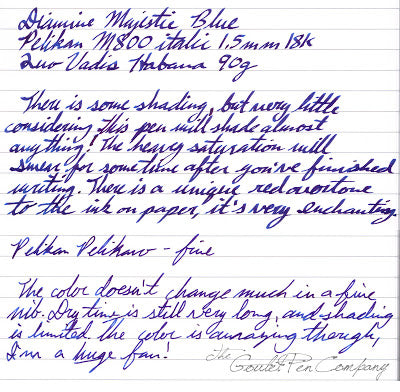 Diamine Majestic Blue
Pelikan M800 italic 1.5mm 18k
Quo Vadis Habana 90g
There is some shading, but very little
considering this pen will shade almost
anything! The heavy saturation will
smear for some time after you've finished
writing. There is a unique red overtone
to the ink on paper, it's very enchanting.
Pelikan Pelikano - fine
The color doesn't change much in a fine
nib. Dry time is still very long, and shading
is limited. The color is amazing though,
I'm a huge fan!
The Goulet Pen Company